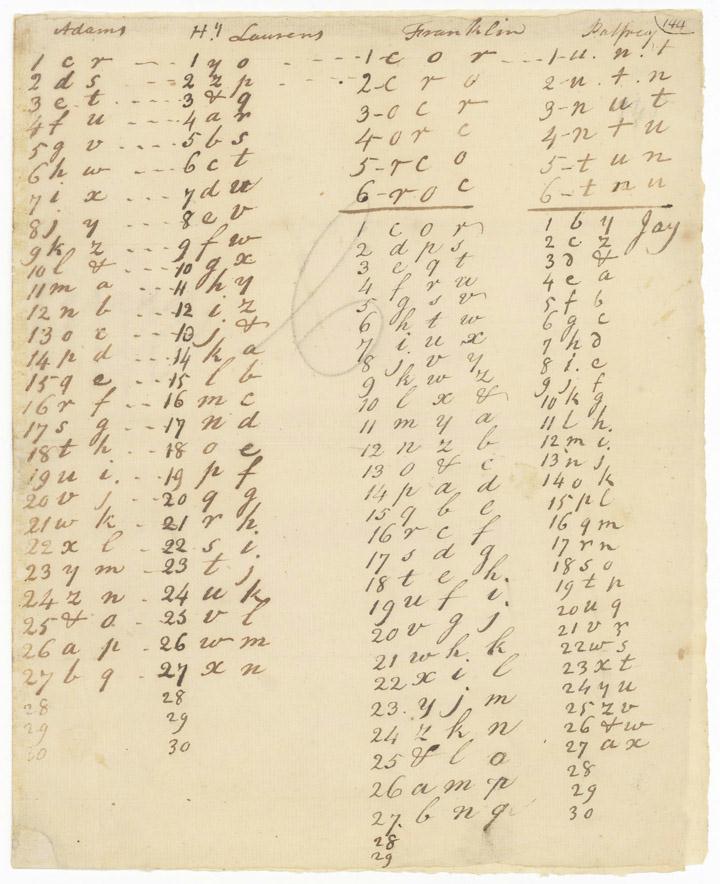 144
Adams H.y Laurens
1 c r --- 1 y o
2 d s --- 2 z p
3 e t ---- 3 & q
4 f u ---- 4 a r
5 g v ---- 5 b s
6 h w ---- 6 c t
7 i x ---- 7 d u
8 j y ---- 8 e v
9 k z --- 9 f w
10 l & --- 10 g x
11 m a --- 11 h y
12 n b --- 12 i z
13 o c --- 13 j &
14 p d --- 14 k a
15 q e --- 15 l b
16 r f --- 16 m c
17 s g --- 17 n d
18 t h -- 18 o e
19 u i. -- 19 p f
20 v j -- 20 q g
21 w k - 21 r h
22 x l - 22 s i.
23 y m - 23 t j
24 z n - 24 u k
25 & o - 25 v l
26 a p - 26 w m
27 b q - 27 x n
28 28
29 29
30 30
Franklin Palfrey
1-c o r --- 1-u. n. t
2-c r o 2-u. t. n
3-o c r 3-n u t
4-o r c 4-n t u
5-r c o 5-t u n
6-r o c 6-t n u
Jay
1 c o r 1 b y
2 d p s 2 c z
3 e q t 3 d &
4 f r u 4 e a
5 g s v 5 f b
6 h t w 6 g c
7 i u x 7 h d
8 j v y 8 i. e
9 k w z 9 j f
10 l x & 10 k g
11 m y a 11 l h.
12 n z b 12 m i.
13 o & c 13 n j
14 p a d 14 o k
15 q b e 15 p l
16 r c f 16 q m
17 s d g 17 r n
18 t e h. 18 s o
19 u f i. 19 t p
20 v g j 20 u q
21 w h k 21 v r
22 x i. l 22 w s
23 y j m 23 x t
24 z k n 24 y u
25 & l o 25 z v
26 a m p 26 & w
27 b n q 27 a x
28 28
29 29
30